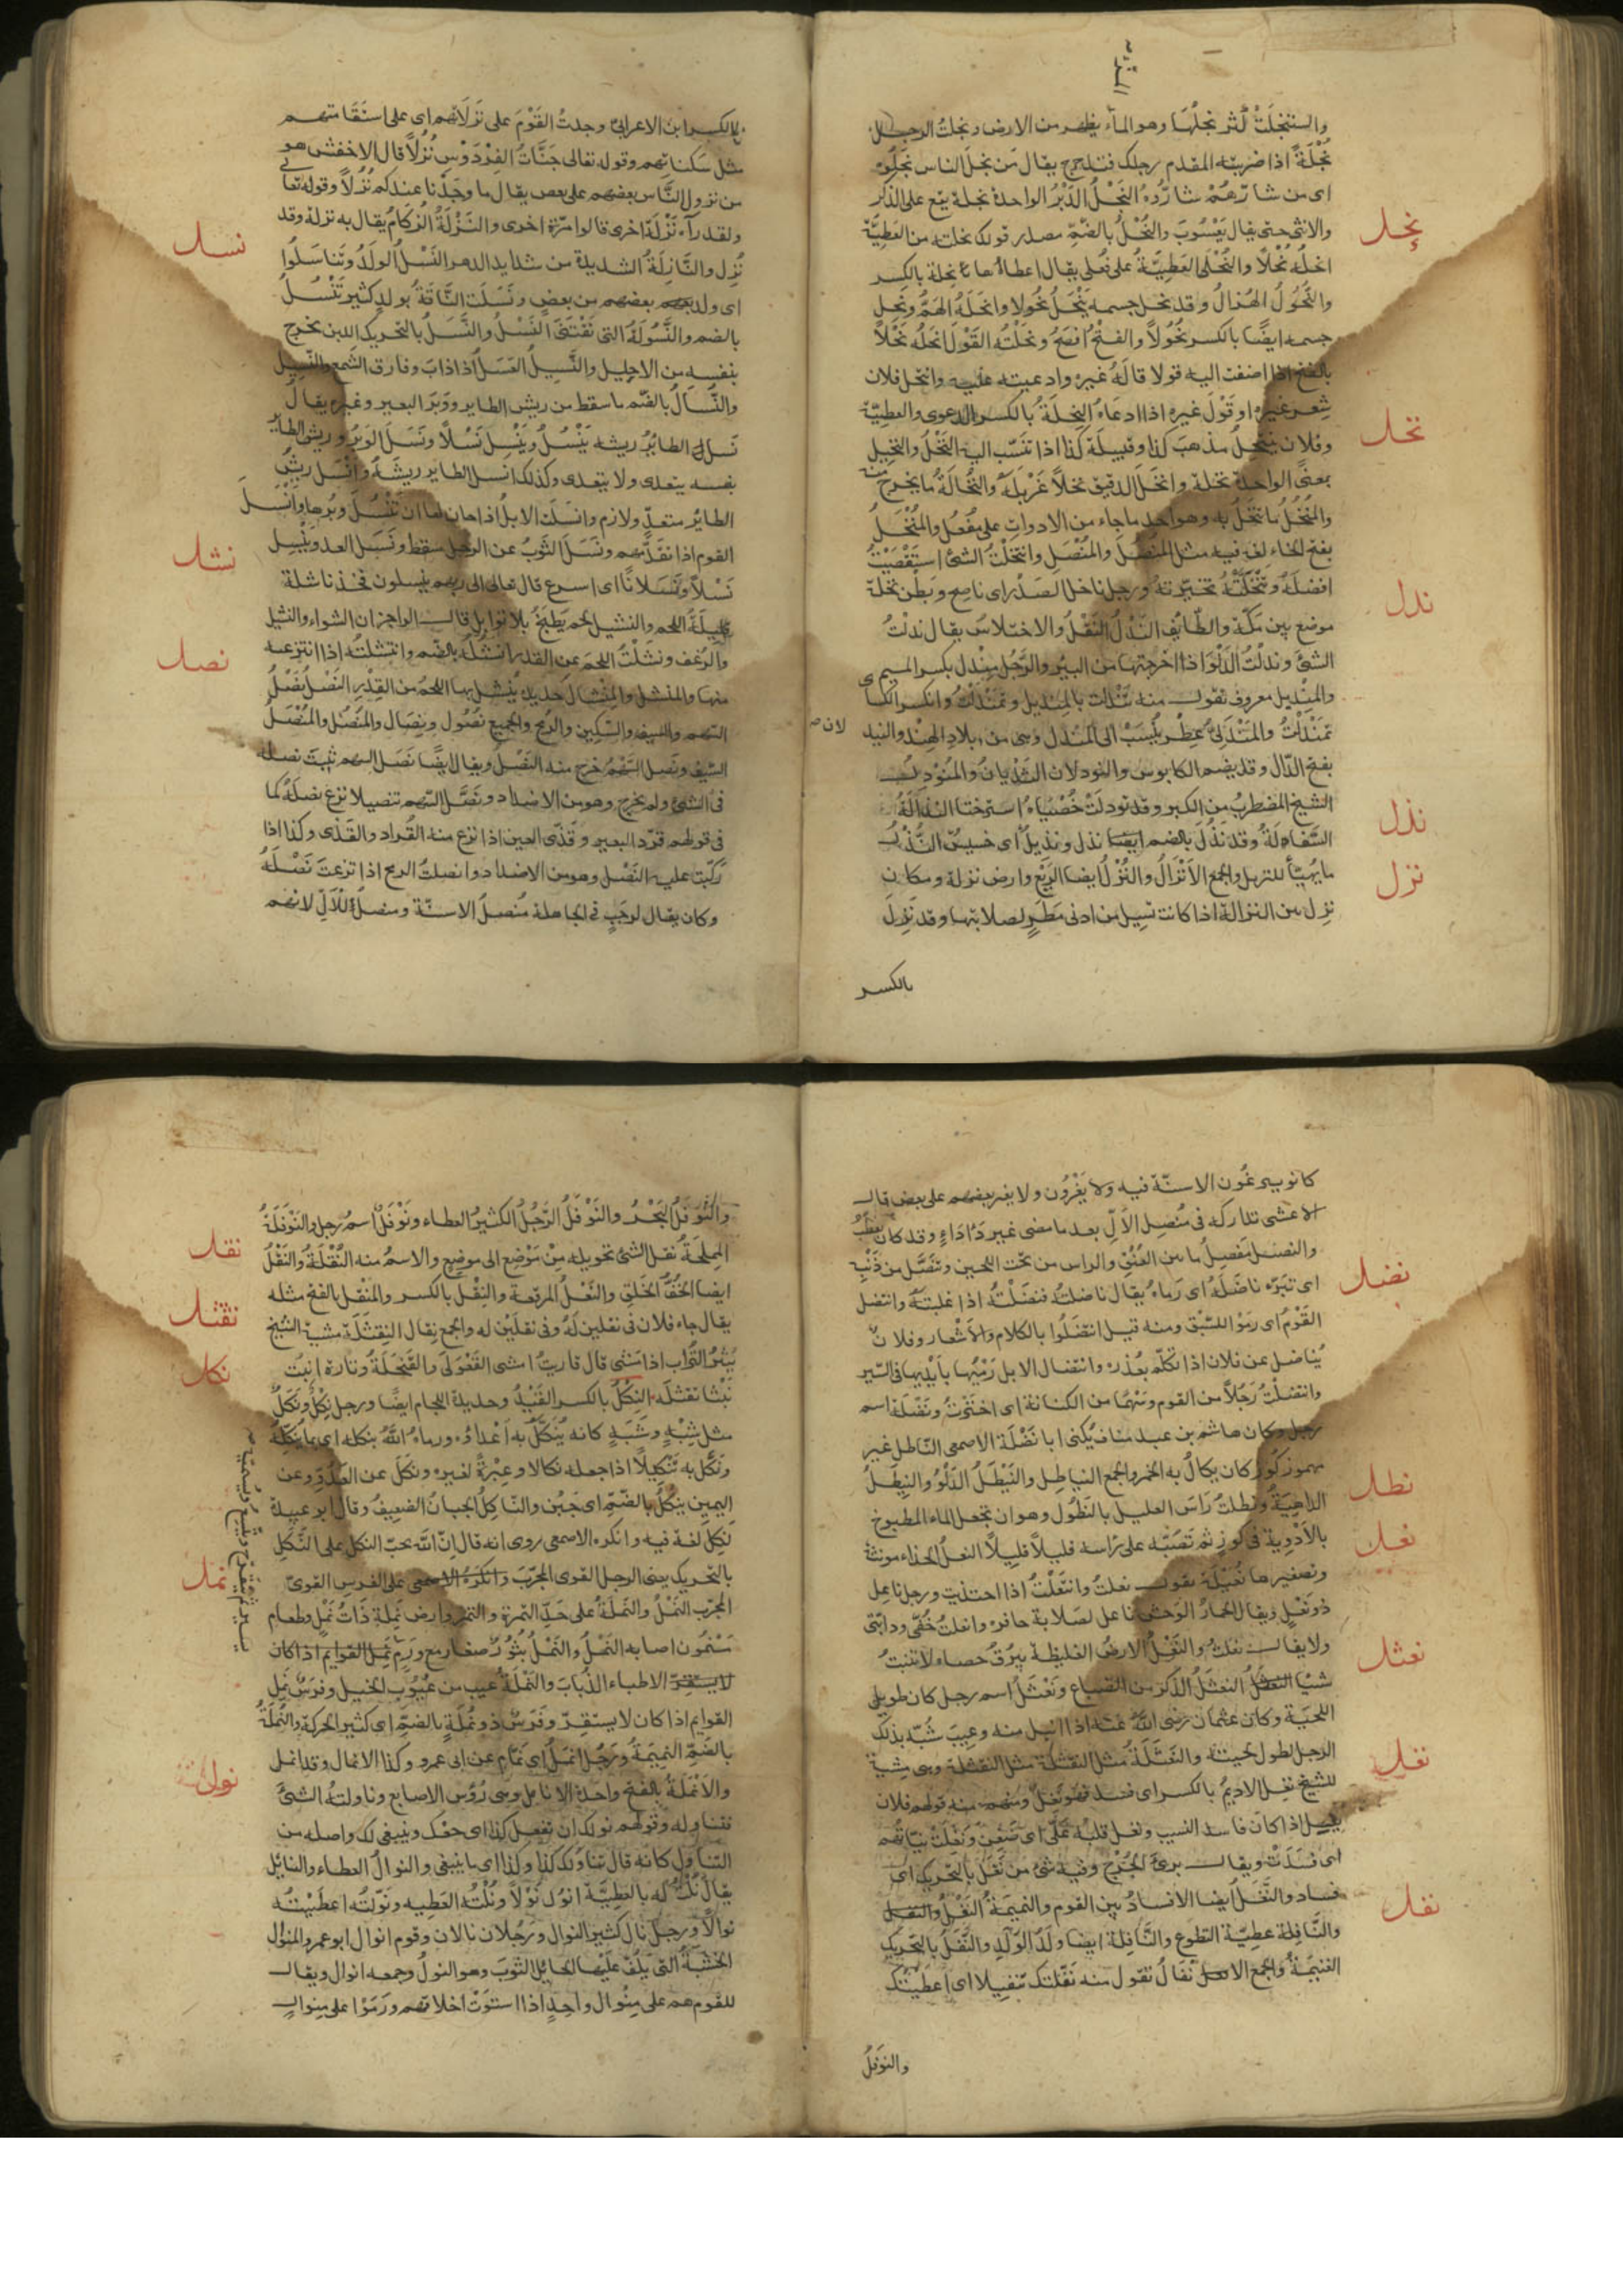 واستنجلت كثر نجلها وهو الماء يظهر من الارض ونجلت الرجل
نجلة اذا ضربته بمقدم رجلك فتدحرج يقال من نجل الناس نجلوه
اى من شارهم شاروه النحل الدبر الواحدة نحلة يقع على الذكر
نحل
والانثى حتى يقال يعسوب والنحل بالضم مصدر قولك نحلته من العطية
انحله نحلا والنحلى العطية على فعلى يقال اعطاها نحلة بالكسر
والنحول الهزال وقد نحل جسمه ينحل نحولا وانحله الهم ونحل
جسمه ايضا بالكسر نحولا والفتح افصح ونحلته القول انحله نحلا
بالفتح اذا اضفت اليه قولا قاله غيره وادعيته عليه وانتحل فلان
شعر غيره او قول غيره اذا ادعاه النحلة بالكسر الدعوى والعطية
نخل
وفلان ينتحل مذهب كذا وقبيلة كذا اذا تنسب اليه النخل والنخيل
بمعنى الواحدة نخلة وانخل الدقيق نخلا غربله والنخالة ما يخرج منه
والمنخل ما ينخل به وهو احد ما جاء من الادوات على مفعل والمنخل
بفتح الخاء لغة فيه مثل المنصل والمنصل وانتخلت الشئ استقصيت
افضله وتنخلته تخيرته ورجل ناخل الصدر اى ناصح وبطن نخلة
ندل
موضع بين مكة والطائف الندل النقل والاختلاس يقال ندلت
الشئ وندلت الدلو اذا اخرجتها من البير والرجل مندل بكسر الميم
والمنديل معروف تقول منه تندلت بالمنديل وتمندلت وانكر الكسا ى
تمندلت والمندلى عطر ينسب الى المندل وهى من بلاد الهند والنيد لان ص
بفتح الدال وقد يضم الكابوس والنودلان الثديان والمنودل
الشيخ المضطرب من الكبر وقد نودلت خصياه استرختا النذالة
نذل
السفاهة وقد نذل بالضم ايضا نذل ونذيل اى خسيس النزل
نزل
ما يهيأ للنزيل والجمع الانزال والنزل ايضا الريع وارض نزلة ومكان
نزل بين النزالة اذا كانت تسيل من ادنى مطر لصلابتها وقد نزل
بالكسر
بالكسر ابن الاعرابى وجدت القوم على نزلاتهم اى على استقامتهم
مثل سكناتهم وقوله تعالى جنات الفردوس نزلا قال الاخفش هو
من نزول الناس بعضهم على بعض يقال ما وجدنا عندكم نزلا وقوله تعالى
ولقد رآه نزلة اخرى قالوا مرة اخرى والنزلة الزكام يقال به نزلة وقد
نسل
نزل والنازلة الشديدة من شدايد الدهر النسل الولد وتناسلوا
اى ولد بعضهم من بعض ونسلت الناقة بولد كثير تنسل
بالضم والنسولة التى تقتنى للنسل والنسل بالتحريك اللبن يخرج
بنفسه من الاحليل والنسيل العسل اذا ذاب وفارق الشمع والنسيل
والنسال بالضم ما سقط من ريش الطاير ووبر البعير وغيره يقال
نسل الطائر ريشه ينسل وينسل نسلا ونسل الوبر وريش الطاير
بنفسه يتعدى ولا يتعدى وكذلك انسل الطاير ريشه وانسل ريش
الطائر متعد ولازم وانسلت الابل اذا حان لها ان تنسل وبرها وانسل
القوم اذا تقدمهم ونسل الثوب عن الرجل سقط ونسل العدو ينسل
نشل
نسلا ونسلانا اى اسرع قال تعالى الى ربهم ينسلون فخذ ناشلة
قليلة اللحم والنشيل لحم يطبخ بلا توابل قال الراجز ان الشواء والنشيل
نصل
والرغف ونشلت اللحم عن القدر انشله بالضم وانتشلته اذا انتزعته
منها والمنشل والمنشال حديدة ينشل بها اللحم من القدر النصل نصل
السهم والسيف والسكين والرمح والجميع نصول ونصال والمنصل والمنصل
السيف ونصل السهم خرج منه النصل ويقال ايضا نصل السهم ثبت نصله
فى الشئ ولم يخرج وهو من الاضداد ونصل السهم تنصيلا نزع نصله كما
فى قولهم قرد البعير وقذى العين اذا نزع منه القراد والقذى وكذا اذا
ركبت عليه النصل وهو من الاضداد وانصلت الرمح اذا نزعت نصله
وكان يقال لرجب فى الجاهلة منصل الاسنة ومنصل الال لانهم
كانوا ينزعون الاسنة فيه ولا يغزون ولا يغير بعضهم على بعض قال
الاعشى تداركه فى منصل الال بعد ما مضى غير دأداء وقد كاد يعطب
والنصل مفصل ما بين العنق والراس من تحت اللحيين وتنصل من ذنبه
نضل
اى تبرء ناضله اى رماه يقال ناضلته فنضلته اذا غلبته وانتضل
القوم اى رموا للسبق ومنه قيل انتضلوا بالكلام والاشعار وفلان
يناضل عن فلان اذا تكلم بعذره وانتضال الابل رميها بايديها فى السير
وانتضلت رجلا من القوم وسهما من الكنانة اى اخترت ونضلة اسم
رجل وكان هاشم بن عبد مناف يكنى ابا نضلة الاصمعى الناطل غير
نطل
مهموز كوز كان يكال به الخمر والجمع النياطل والنيطل الدلو والنيطل
الداهية ونطلت راس العليل بالنطول وهو ان تجعل الماء المطبوخ
نعل
بالادوية فى كوز ثم تصبه على راسه قليلا قليلا النعل الحذاء مونثة
وتصغيرها نعيلة تقول نعلت وانتعلت اذا احتذيت ورجل ناعل
ذو نعل ويقال لحمار الوحش ناعل لصلابة حافره وانعلت خفى ودابتى
ولا يقال نعلت والنعل الارض الغليظة يبرق حصاه لا تنبت
نعثل
شيئا النعثل الذكر من الضباع ونعثل اسم رجل كان طويل
اللحية وكان عثمان رضى الله عنه اذا نيل منه وعيب شبه بذلك
الرجل لطول لحيته والنعثلة مثل النقثلة وهى مشية
نغل
للشيخ نغل الاديم بالكسر اى فسد فهو نغل ومنه قولهم فلان
نغل اذا كان فاسد النسب ونغل قلبه على اى ضغن ونغلت نياتهم
اى فسدت ويقال برئ الجرح وفيه شئ من نغل بالتحريك اى
نفل
فساد والنغل ايضا الافساد بين القوم والنميمة النفل
والنافلة عطية التطوع والنافلة ايضا ولد الولد والنفل بالتحريك
الغنيمة والجمع الانفال تقول منه نفلتك تنفيلا اى اعطيتك
والنوفل
والنوفل البحر والنوفل الرجل الكثير العطاء ونوفل اسم رجل والنوفلة
نقل
المملحة نقل الشئ تحويله من موضع الى موضع والاسم منه النقلة والنقل
ايضا الخف الخلق والنعل المرقعة والنقل بالكسر والمنقل بالفتح مثله
نقثل
يقال جاء فلان فى نقلين له وفى نقلين له والجمع نقال النقثلة مشية الشيخ
نكل
يثير التراب اذا مشى قال قاربت امشى القعولى والفنجلة وتارة انبث
نبثا نقثله النكل بالكسر القيد وحديدة اللجام ايضا ورجل نكل ونكل
مثل شبه وشبه كانه ينكل به اعداؤه ورماه الله بنكله اى بما ينكله
ونكل به تنكيلا اذا جعله نكالا وعبرة لغيره ونكل عن العدو وعن
اليمين ينكل بالضم اى جبن والناكل الجبان الضعيف وقال ابو عبيدة
نكل لغة فيه وانكره الاصمعى روى انه قال ان الله يحب النكل على النكل
نمل
بالتحريك يعنى الرجل القوى المجرب وانكره الاصمعى على الفرس القوى
المجرب النمل والنملة على حد التمرة والتمر وارض نملة ذات نمل وطعام
منمول اصابه النمل والنمل بثور صغار مع ورم نمل القوايم اذا كان
لا يستقر الاطباء الذباب والنملة عيب من عيوب الخيل وفرس نمل
القوايم اذا كان لا يستقر وفرس ذو نملة بالضم اى كثير الحركة والنملة
بالضم النميمة ورجل نمل اى نمام عن ابى عمرو وكذا الانمال وقد انمل
نول
والانملة بالفتح واحدة الانامل وهى رؤس الاصابع وناولته الشئ
فتناوله وقولهم نولك ان تفعل كذا اى حقك وينبغى لك واصله من
التناول كانه قال تناولك كذا وكذا اى ما ينبغى والنوال العطاء والنائل
يقال نلت له بالعطية انول نولا ونلته العطيه ونولته اعطيته
نوالا ورجل نال كثير النوال ورجلان نالان وقوم انوال ابو عمرو المنوال
الخشبة التى يلف عليها الحائل الثوب وهو النول وجمعه انوال ويقال
للقوم هم على منوال واحد اذا استوت اخلاقهم ورموا على منوال